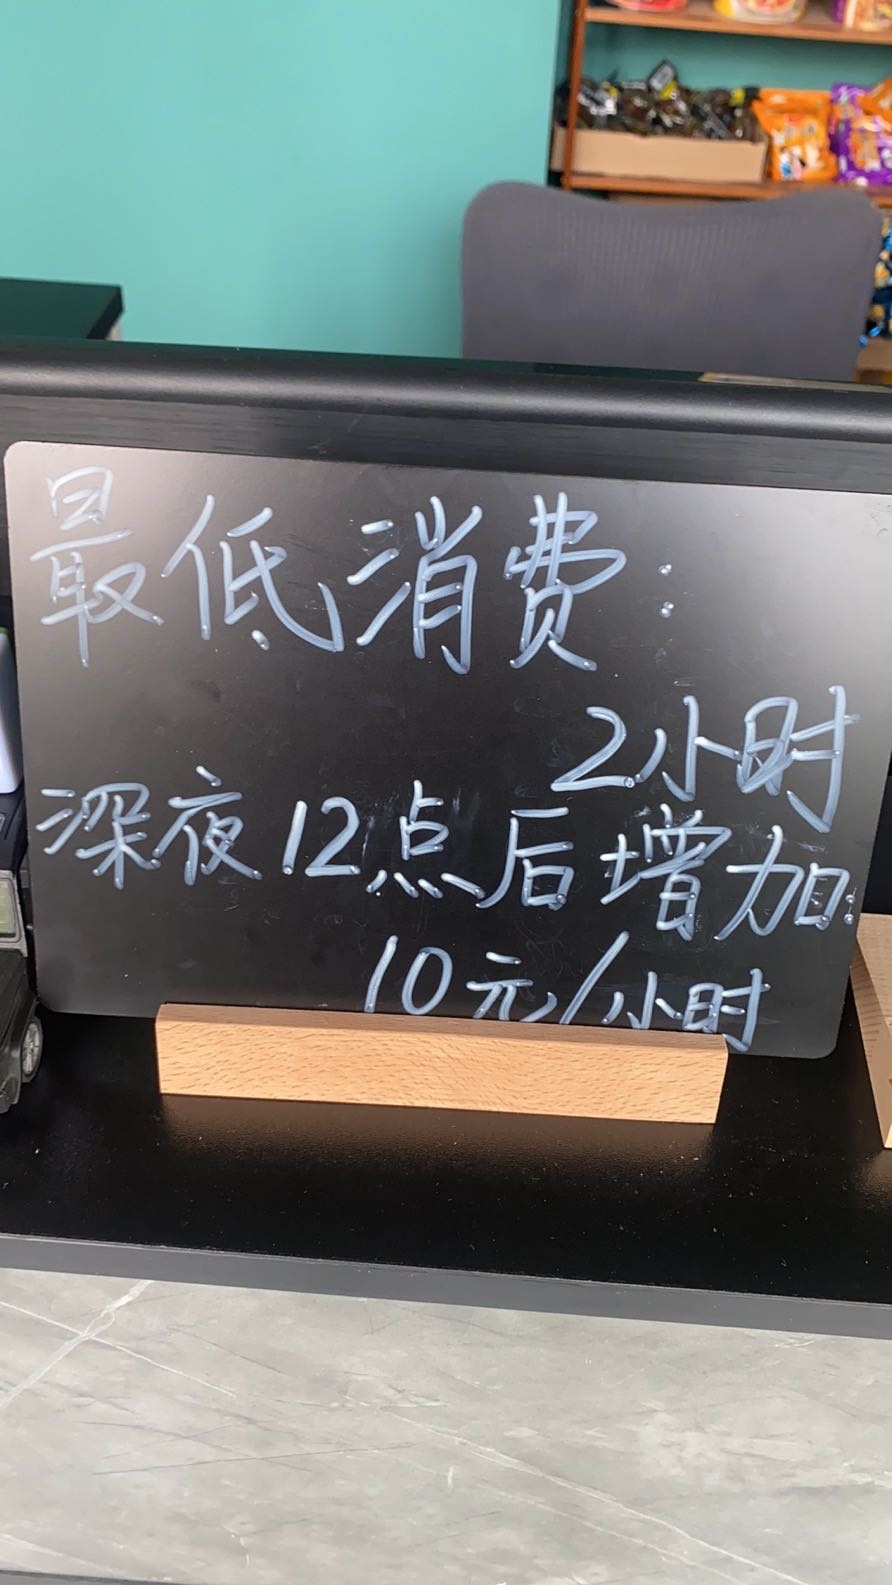 最低消费：
2小时
深夜12点后增加：
10元/小时